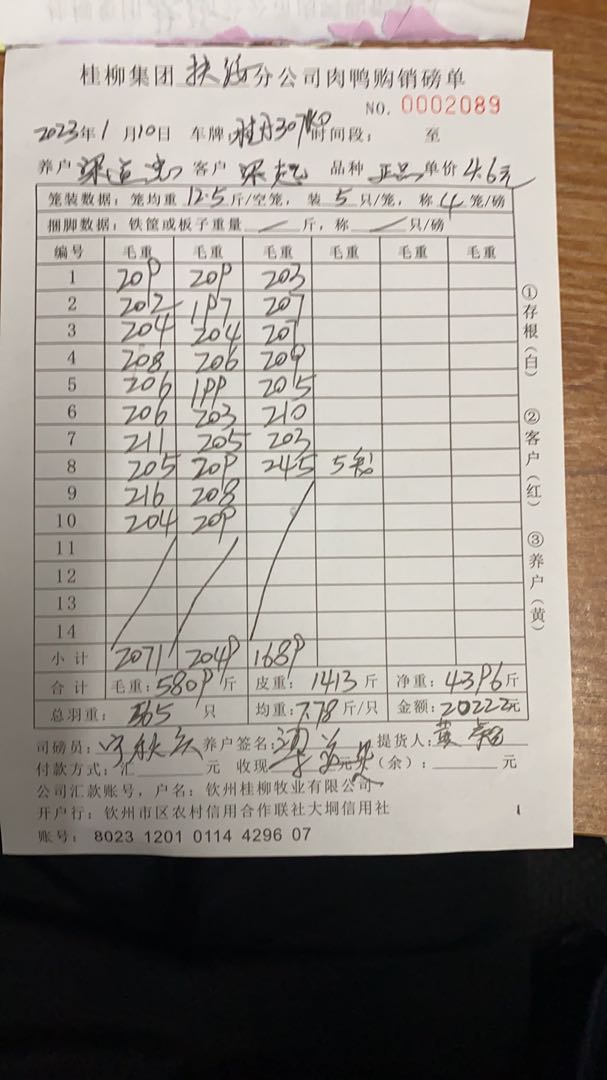 桂柳集团 扶绥 分公司肉鸭购销磅单
NO. 0002089
2023年1月10日 车牌: 桂 307 时间段: 至
养户 梁 客户 梁 品种 正品 单价 4.6元
笼装数据: 笼均重 12.5 斤/空笼, 装 5 只/笼, 称 4 笼/磅
捆脚数据: 铁筐或板子重量 / 斤, 称 / 只/磅
编号 毛重 毛重 毛重 毛重 毛重 毛重
1 209 209 203
2 202 197 207
3 204 204 207
4 208 206 209
5 206 199 205
6 206 203 210
7 211 205 203
8 205 209 245 5笼
9 216 208
10 204 209
11
12
13
14
小计 2071 2049 1689
合计 毛重: 5809 斤 皮重: 1413 斤 净重: 4396 斤
总羽重: 565 只 均重: 7.78 斤/只 金额: 20222元
司磅员: 养户签名: 提货人: 黄
付款方式: 汇 元 收现 元 (余): 元
公司汇款账号, 户名: 钦州桂柳牧业有限公司
开户行: 钦州市区农村信用合作联社大垌信用社
账号: 8023 1201 0114 4296 07
①存根(白) ②客户(红) ③养户(黄)